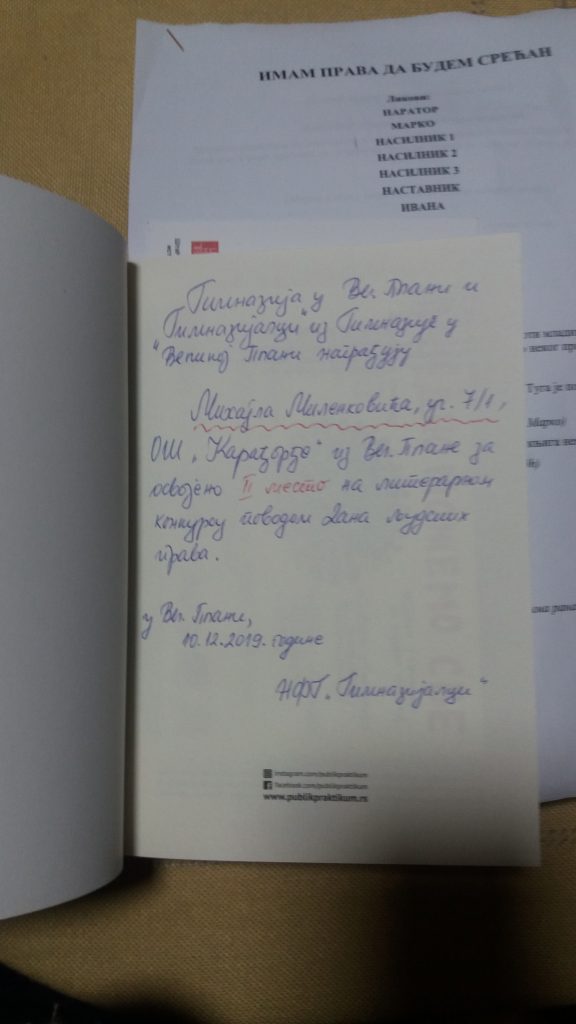 ИМАМ ПРАВА ДА БУДЕМ СРЕЋАН
Ликови:
НАРАТОР
МАРКО
НАСИЛНИК 1
НАСИЛНИК 2
НАСИЛНИК 3
НАСТАВНИК
ИВАНА
Туга је
Марко)
Гимназија у Вел. Плани и
"Гимназијалци" из Гимназије у
Великој Плани награђују
Михајла Миленковића, уч. 7/1,
ОШ „Карађорђе“ из Вел. Плане за
освојено II место на литерарном
конкурсу поводом Дана људских
права.
у Вел. Плани,
10.12.2019. године
НФП „Гимназијалци“
instagram.com/publikpraktikum
facebook.com/publikpraktikum
www.publikpraktikum.rs